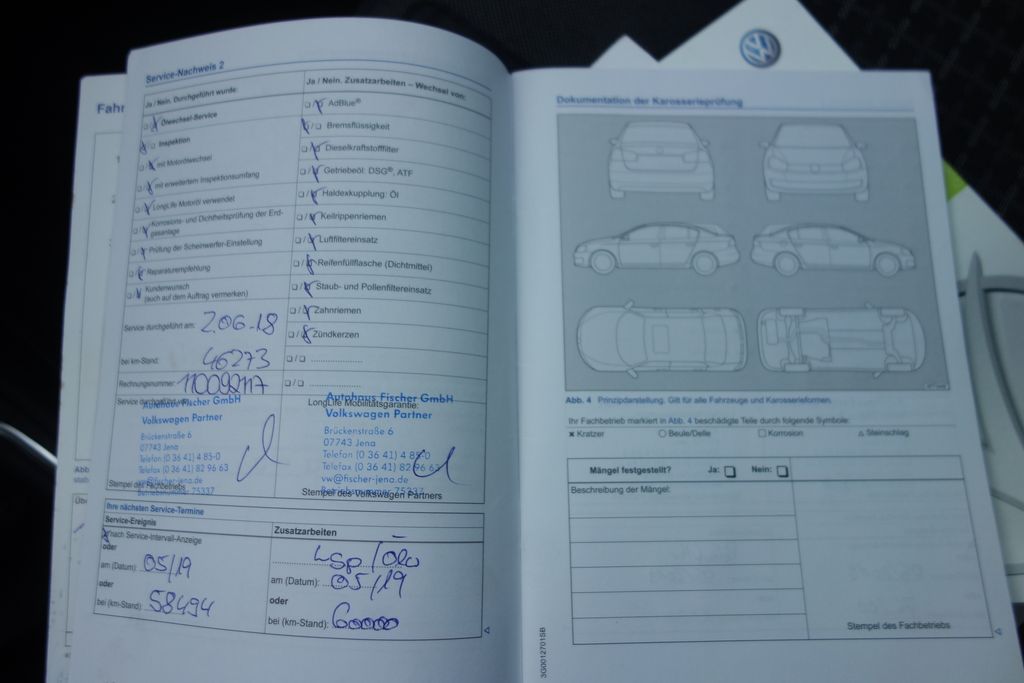 Fahr
Service-Nachweis 2
Ja / Nein. Durchgeführt wurde:
Ölwechsel-Service
Inspektion
mit Motorölwechsel
mit erweitertem Inspektionsumfang
LongLife Motoröl verwendet
Korrosions- und Dichtheitsprüfung der Erd-
gasanlage
Prüfung der Scheinwerfer-Einstellung
Reparaturempfehlung
Kundenwunsch
(auch auf dem Auftrag vermerken)
Service durchgeführt am: 2.06.18
bei km-Stand: 46273
Rechnungsnummer: 110092117
Service durchgeführt von:
Autohaus Fischer GmbH
Volkswagen Partner
Brückenstraße 6
07743 Jena
Telefon (0 36 41) 4 85-0
Telefax (0 36 41) 82 96 63
vw@fischer-jena.de
Stempel des Fachbetriebs
Betriebsnummer 75337
Ja / Nein. Zusatzarbeiten – Wechsel von:
AdBlue®
Bremsflüssigkeit
Dieselkraftstofffilter
Getriebeöl: DSG®, ATF
Haldexkupplung: Öl
Keilrippenriemen
Luftfiltereinsatz
Reifenfüllflasche (Dichtmittel)
Staub- und Pollenfiltereinsatz
Zahnriemen
Zündkerzen
LongLife Mobilitätsgarantie:
Autohaus Fischer GmbH
Volkswagen Partner
Brückenstraße 6
07743 Jena
Telefon (0 36 41) 4 85-0
Telefax (0 36 41) 82 96 63
vw@fischer-jena.de
Stempel des Volkswagen Partners
Betriebsnummer 75337
Ihre nächsten Service-Termine
Service-Ereignis
nach Service-Intervall-Anzeige
oder
am (Datum): 05/19
oder
bei (km-Stand): 58494
Zusatzarbeiten
am (Datum): 05/19
oder
bei (km-Stand): 60000
Abb
Dokumentation der Karosserieprüfung
Abb. 4 Prinzipdarstellung. Gilt für alle Fahrzeuge und Karosserieformen.
Ihr Fachbetrieb markiert in Abb. 4 beschädigte Teile durch folgende Symbole:
× Kratzer ○ Beule/Delle □ Korrosion △ Steinschlag
Mängel festgestellt? Ja: Nein:
Beschreibung der Mängel:
Stempel des Fachbetriebs
3G0012701SB